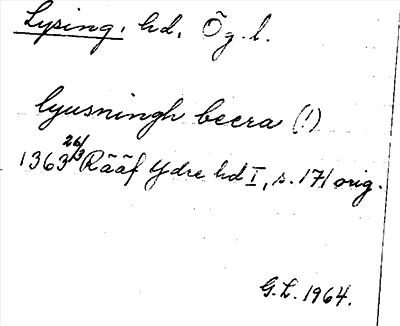 Lysing, hd, Ög. l.
lyusningh beera (!)
1363 26/3 Rääf Ydre hd I, s. 171 orig.
G.L. 1964.